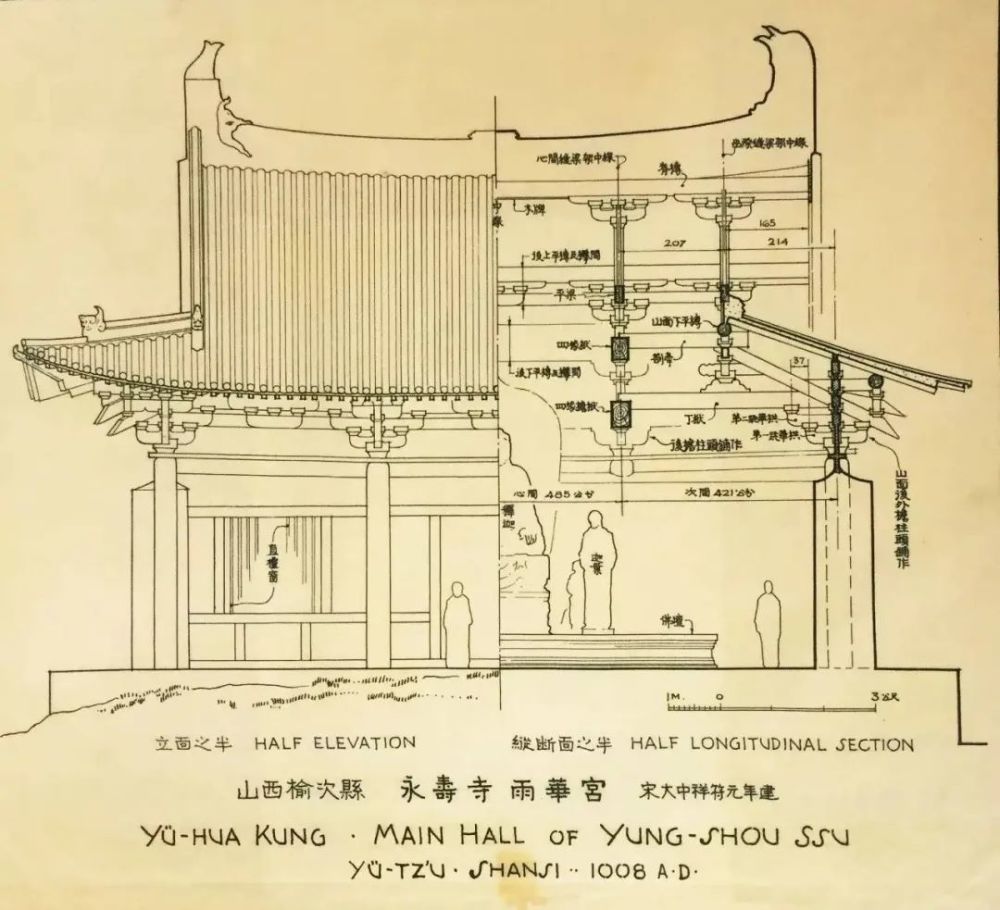 出際縫梁架中線
心間縫梁架中線
脊槫
中線
木牌
165
207
214
後上平槫及襻間
平梁
山面下平槫
四椽栿
劄牽
後下平槫及襻間
37
四椽檐栿
丁栿
第二跳華拱
第一跳華拱
後檐柱頭鋪作
山面後外檐柱頭鋪作
心間 485公分
次間 421公分
釋迦
迦葉
直欞窗
佛壇
1M. 0 3公尺
立面之半 HALF ELEVATION
縱断面之半 HALF LONGITUDINAL SECTION
山西榆次縣 永壽寺雨華宮 宋大中祥符元年建
YÜ-HUA KUNG · MAIN HALL OF YUNG-SHOU SSU
YÜ-TZ'U · SHANSI ·· 1008 A·D·